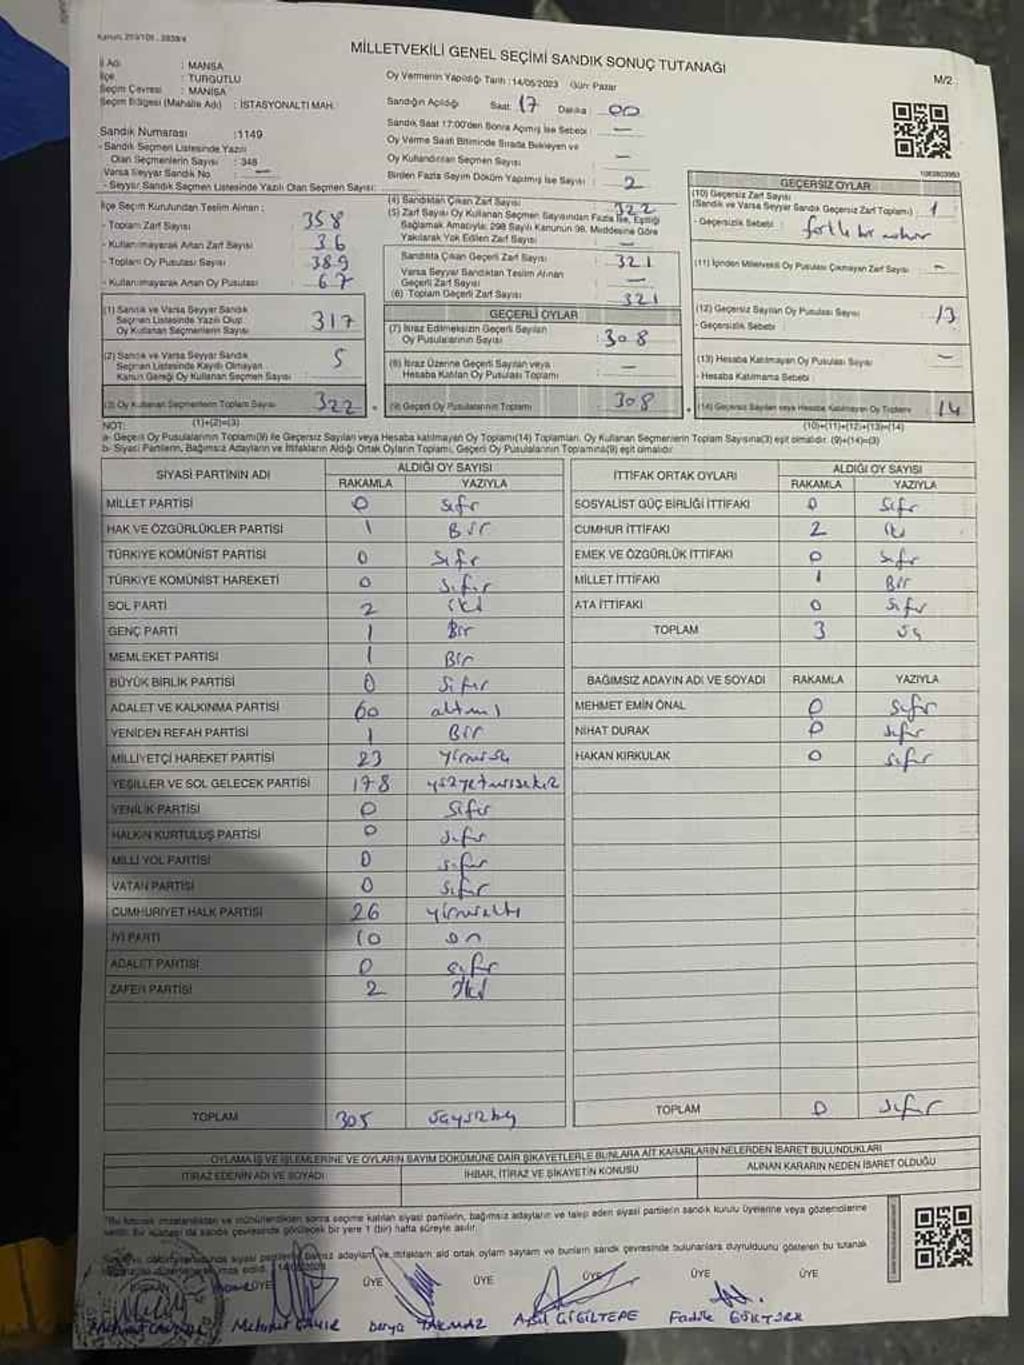 MİLLETVEKİLİ GENEL SEÇİMİ SANDIK SONUÇ TUTANAĞI
M/2
İl Adı : MANİSA
İlçe : TURGUTLU
Seçim Çevresi : MANİSA
Seçim Bölgesi (Mahalle Adı) : İSTASYONALTI MAH.
Sandık Numarası :1149
- Sandık Seçmen Listesinde Yazılı
Olan Seçmenlerin Sayısı : 348
Varsa Seyyar Sandık No
- Seyyar Sandık Seçmen Listesinde Yazılı Olan Seçmen Sayısı:
Oy Vermenin Yapıldığı Tarih : 14/05/2023 Gün: Pazar
Sandığın Açıldığı Saat: 17 Dakika : 00
Sandık Saat 17:00'den Sonra Açılmış İse Sebebi : —
Oy Verme Saati Bitiminde Sırada Bekleyen ve
Oy Kullandırılan Seçmen Sayısı : —
Birden Fazla Sayım Döküm Yapılmış İse Sayısı : 2
İlçe Seçim Kurulundan Teslim Alınan :
- Toplam Zarf Sayısı : 358
- Kullanılmayarak Artan Zarf Sayısı : 36
- Toplam Oy Pusulası Sayısı : 389
- Kullanılmayarak Artan Oy Pusulası : 67
(1) Sandık ve Varsa Seyyar Sandık
Seçmen Listesinde Yazılı Olup
Oy Kullanan Seçmenlerin Sayısı : 317
(2) Sandık ve Varsa Seyyar Sandık
Seçmen Listesinde Kayıtlı Olmayan
Kanun Gereği Oy Kullanan Seçmen Sayısı : 5
(3) Oy Kullanan Seçmenlerin Toplam Sayısı : 322
(1)+(2)=(3)
(4) Sandıktan Çıkan Zarf Sayısı : 322
(5) Zarf Sayısı Oy Kullanan Seçmen Sayısından Fazla İse, Eşitliği
Sağlamak Amacıyla; 298 Sayılı Kanunun 98. Maddesine Göre
Yakılarak Yok Edilen Zarf Sayısı : —
Sandıkta Çıkan Geçerli Zarf Sayısı : 321
Varsa Seyyar Sandıktan Teslim Alınan
Geçerli Zarf Sayısı : —
(6) Toplam Geçerli Zarf Sayısı : 321
GEÇERLİ OYLAR
(7) İtiraz Edilmeksizin Geçerli Sayılan
Oy Pusulalarının Sayısı : 308
(8) İtiraz Üzerine Geçerli Sayılan veya
Hesaba Katılan Oy Pusulası Toplamı : —
(9) Geçerli Oy Pusulalarının Toplamı : 308
GEÇERSİZ OYLAR
(10) Geçersiz Zarf Sayısı
(Sandık ve Varsa Seyyar Sandık Geçersiz Zarf Toplamı) : 1
- Geçersizlik Sebebi :
(11) İçinden Milletvekili Oy Pusulası Çıkmayan Zarf Sayısı : —
(12) Geçersiz Sayılan Oy Pusulası Sayısı : 13
- Geçersizlik Sebebi :
(13) Hesaba Katılmayan Oy Pusulası Sayısı : —
- Hesaba Katılmama Sebebi
(14) Geçersiz Sayılan veya Hesaba Katılmayan Oy Toplamı : 14
(10)+(11)+(12)+(13)=(14)
NOT:
a- Geçerli Oy Pusulalarının Toplamı(9) ile Geçersiz Sayılan veya Hesaba katılmayan Oy Toplamı(14) Toplamları, Oy Kullanan Seçmenlerin Toplam Sayısına(3) eşit olmalıdır. (9)+(14)=(3)
b- Siyasi Partilerin, Bağımsız Adayların ve İttifakların Aldığı Ortak Oyların Toplamı, Geçerli Oy Pusulalarının Toplamına(9) eşit olmalıdır.
SİYASİ PARTİNİN ADI ALDIĞI OY SAYISI
RAKAMLA YAZIYLA
MİLLET PARTİSİ 0 sıfır
HAK VE ÖZGÜRLÜKLER PARTİSİ 1 Bir
TÜRKİYE KOMÜNİST PARTİSİ 0 sıfır
TÜRKİYE KOMÜNİST HAREKETİ 0 sıfır
SOL PARTİ 2 iki
GENÇ PARTİ 1 Bir
MEMLEKET PARTİSİ 1 Bir
BÜYÜK BİRLİK PARTİSİ 0 sıfır
ADALET VE KALKINMA PARTİSİ 60 altmış
YENİDEN REFAH PARTİSİ 1 Bir
MİLLİYETÇİ HAREKET PARTİSİ 23 yirmiüç
YEŞİLLER VE SOL GELECEK PARTİSİ 178 yüzyetmişsekiz
YENİLİK PARTİSİ 0 sıfır
HALKIN KURTULUŞ PARTİSİ 0 sıfır
MİLLİ YOL PARTİSİ 0 sıfır
VATAN PARTİSİ 0 sıfır
CUMHURİYET HALK PARTİSİ 26 yirmialtı
İYİ PARTİ 10 on
ADALET PARTİSİ 0 sıfır
ZAFER PARTİSİ 2 iki
TOPLAM 305 üçyüzbeş
İTTİFAK ORTAK OYLARI ALDIĞI OY SAYISI
RAKAMLA YAZIYLA
SOSYALİST GÜÇ BİRLİĞİ İTTİFAKI 0 sıfır
CUMHUR İTTİFAKI 2 iki
EMEK VE ÖZGÜRLÜK İTTİFAKI 0 sıfır
MİLLET İTTİFAKI 1 Bir
ATA İTTİFAKI 0 sıfır
TOPLAM 3 üç
BAĞIMSIZ ADAYIN ADI VE SOYADI RAKAMLA YAZIYLA
MEHMET EMİN ÖNAL 0 sıfır
NİHAT DURAK 0 sıfır
HAKAN KIRKULAK 0 sıfır
TOPLAM 0 sıfır
OYLAMA İŞ VE İŞLEMLERİNE VE OYLARIN SAYIM DÖKÜMÜNE DAİR ŞİKAYETLERLE BUNLARA AİT KARARLARIN NELERDEN İBARET BULUNDUKLARI
İTİRAZ EDENİN ADI VE SOYADI İHBAR, İTİRAZ VE ŞİKAYETİN KONUSU ALINAN KARARIN NEDEN İBARET OLDUĞU
ÜYE ÜYE ÜYE ÜYE ÜYE ÜYE
Derya Aysel GİGİLTEPE Fadile GÖKTÜRK